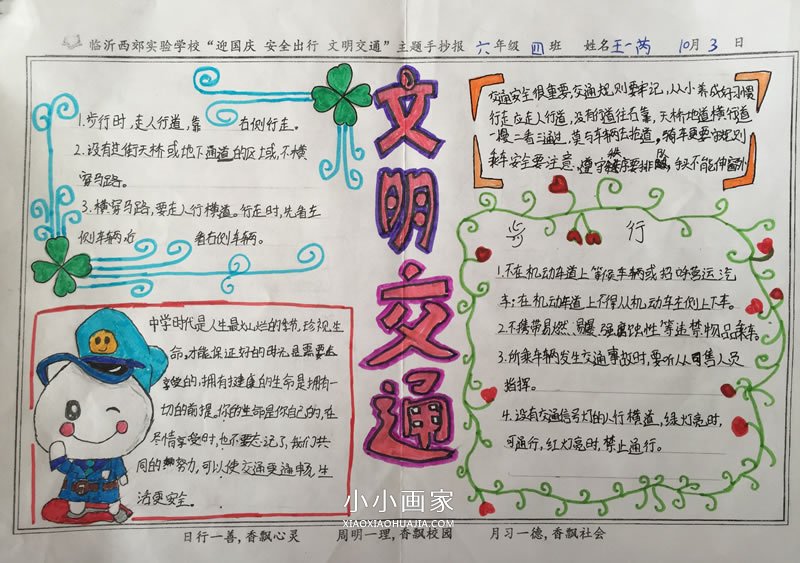 临沂西郊实验学校“迎国庆 安全出行 文明交通”主题手抄报 六年级 四班 姓名王一芮 10月3日
文明交通
1.步行时,走人行道,靠 右侧行走。
2.没有其街天桥或地下通道的区域,不横
穿马路。
3.横穿马路,要走人行横道。行走时,先看左
侧车辆,后 看右侧车辆。
交通安全很重要,交通规则要牢记,从小养成好习惯
行走应走人行道,没有行道往右靠,天桥地道横行道
一慢二看三通过,莫与车辆去抢道。骑车更要守规则
乘车安全要注意,遵守秩序要排队,手头不能伸窗外
步行
1.不在机动车道上等候车辆或招呼营运汽
车;在机动车道上不得从机动车左侧上下车。
2.不携带易燃、易爆、强腐蚀性等违禁物品乘车
3.所乘车辆发生交通事故时,要听从司售人员
指挥。
4.没有交通信号灯的人行横道,绿灯亮时,
可通行,红灯亮时,禁止通行。
中学时代是人生最灿烂的季节,珍视生
命,才能保证好的时光是需要去
的,拥有健康的生命是拥有一
切的前提,你的生命是你自己的,在
尽情享受时,也不要忘记了,我们共
同的努力,可以使交通更通畅,生
活更安全。
小小画家
XIAOXIAOHUAJIA.COM
日行一善,香飘心灵 周明一理,香飘校园 月习一德,香飘社会